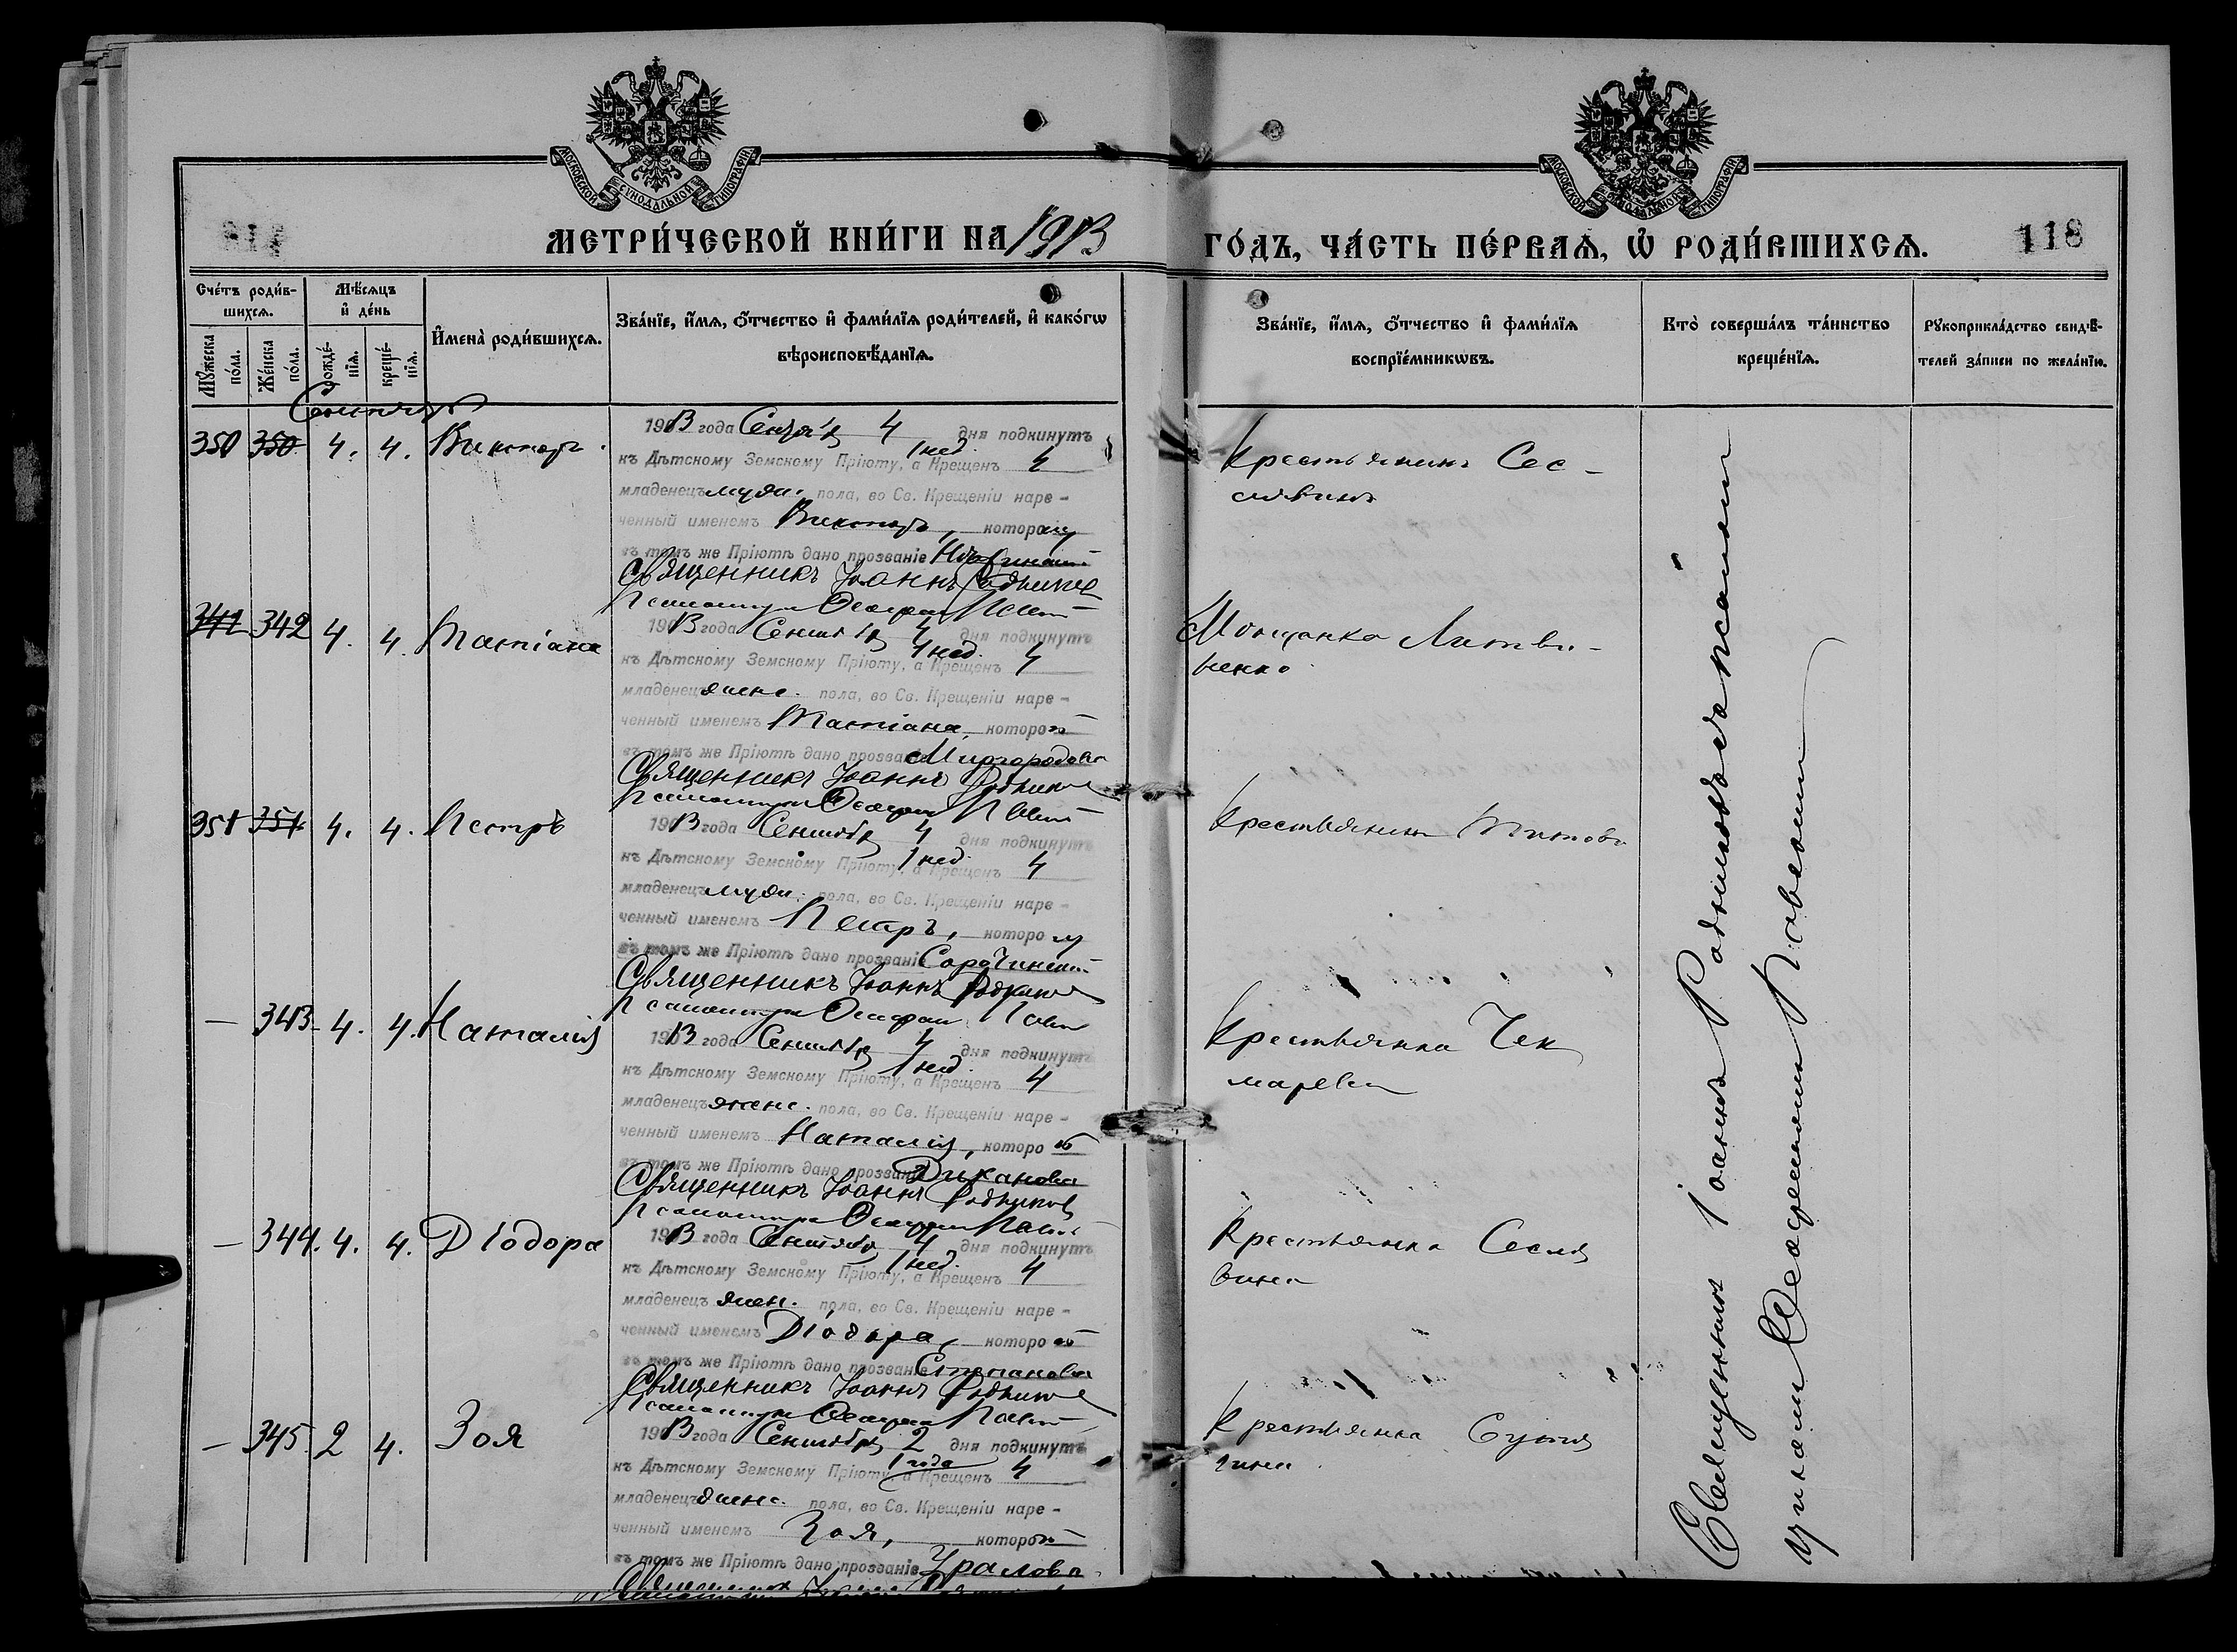 МОСКОВСКОЙ СУНОДАЛЬНОЙ ТИПОГРАФІИ
МОСКОВСКОЙ СУНОДАЛЬНОЙ ТИПОГРАФІИ
МЕТРИ́ЧЕСКОЙ КНИ́ГИ НА 1913
ГО́ДЪ, ЧА́СТЬ ПЕ́РВАѦ, Ѡ҆ РОДИ́ВШИХСѦ.
118
Сче́тъ роди́в-
шихсѧ.
Мꙋ́жеска
по́ла.
Же́нска
по́ла.
Мѣ́сѧцъ
и҆ де́нь
рожде́-
нїѧ.
креще́-
нїѧ.
И҆мена̀ роди́вшихсѧ.
Зва́нїе, и҆́мѧ, ѻ҆́тчество и҆ фами́лїѧ роди́телей, и҆ како́гѡ
вѣроисповѣ́данїѧ.
Зва́нїе, и҆́мѧ, ѻ҆́тчество и҆ фами́лїѧ
воспрїе́мникѡвъ.
Кто̀ соверша́лъ та́инство
креще́нїѧ.
Рꙋкоприкла́дство свидѣ́-
телей за́писи по жела́нїю.
Сентябрь
350 350 4. 4. Викторъ
1913 года Сентяб. 4 дня подкинутъ
1 нед.
къ Дѣтскому Земскому Пріюту, а Крещенъ 4
младенецъ муж. пола, во Св. Крещеніи наре-
ченный именемъ Викторъ, которому
въ томъ же Пріютѣ дано прозваніе
Священникъ Іоаннъ Родниковъ
Псаломщикъ
Крестьянинъ Сес-
лявинъ
341 342 4. 4. Татіана
1913 года Сентяб. 4 дня подкинутъ
1 нед.
къ Дѣтскому Земскому Пріюту, а Крещенъ 4
младенецъ женс. пола, во Св. Крещеніи наре-
ченный именемъ Татіана, которой
въ томъ же Пріютѣ дано прозваніе Миргородова
Священникъ Іоаннъ Родниковъ
Псаломщикъ
Мѣщанка Литви-
ненко
351 351 4. 4. Петръ
1913 года Сентября 4 дня подкинутъ
1 нед.
къ Дѣтскому Земскому Пріюту, а Крещенъ 4
младенецъ муж. пола, во Св. Крещеніи наре-
ченный именемъ Петръ, которому
въ томъ же Пріютѣ дано прозваніе Сорочинскій
Священникъ Іоаннъ Родниковъ
Псаломщикъ
Крестьянинъ Титовъ
— 343 4. 4. Наталія
1913 года Сентября 4 дня подкинутъ
1 нед.
къ Дѣтскому Земскому Пріюту, а Крещенъ 4
младенецъ женс. пола, во Св. Крещеніи наре-
ченный именемъ Наталія, которой
въ томъ же Пріютѣ дано прозваніе Диканова
Священникъ Іоаннъ Родниковъ
Псаломщикъ
Крестьянка Чек
марева
— 344. 4. 4. Діодора
1913 года Сентября 4 дня подкинутъ
1 нед.
къ Дѣтскому Земскому Пріюту, а Крещенъ 4
младенецъ жен. пола, во Св. Крещеніи наре-
ченный именемъ Діодора, которой
въ томъ же Пріютѣ дано прозваніе Степанова
Священникъ Іоаннъ Родниковъ
Псаломщикъ
Крестьянка Сесля
вина
— 345. 2 4. Зоя
1913 года Сентября 2 дня подкинутъ
1 года
къ Дѣтскому Земскому Пріюту, а Крещенъ 4
младенецъ женс. пола, во Св. Крещеніи наре-
ченный именемъ Зоя, которой
въ томъ же Пріютѣ дано прозваніе Уралова
Крестьянка
Священникъ Іоаннъ Родниковъ съ псалом
щикомъ